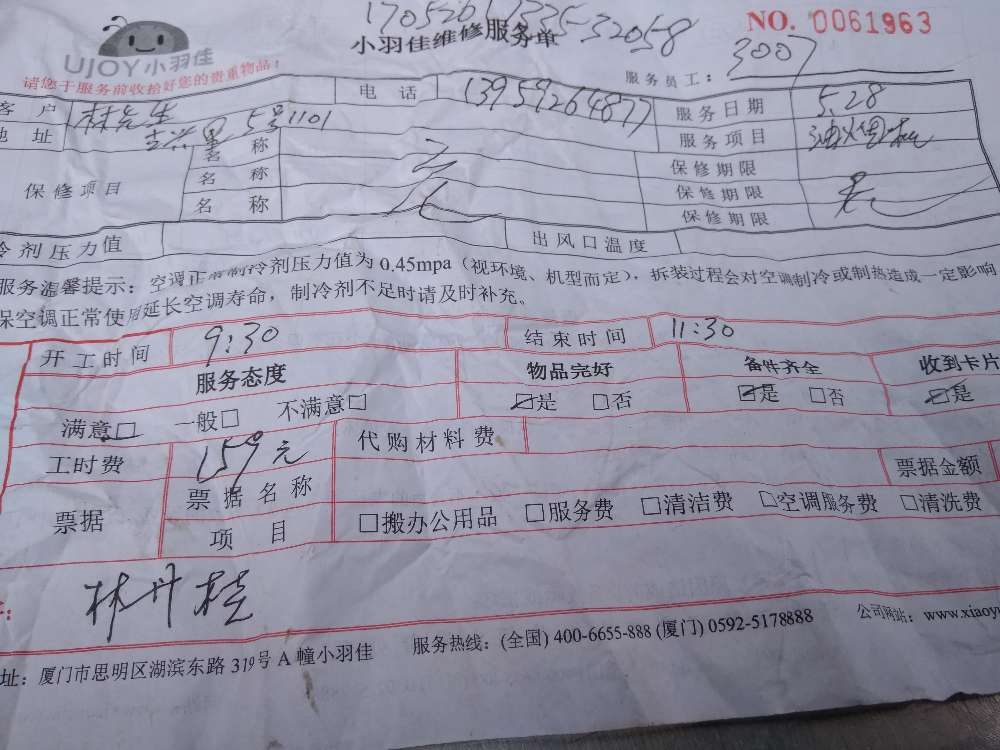 NO. 0061963
小羽佳维修服务单
UJOY小羽佳
请您于服务前收拾好您的贵重物品!
服务员工: 3007
客户 林先生 电话 13959264877 服务日期 5.28
地址 吉兴里5号1101 服务项目 油烟机
保修项目 名称 保修期限
名称 保修期限
名称 保修期限
冷剂压力值 出风口温度
服务温馨提示: 空调正常制冷剂压力值为0.45mpa(视环境、机型而定), 拆装过程会对空调制冷或制热造成一定影响
保空调正常使用延长空调寿命, 制冷剂不足时请及时补充。
开工时间 9:30 结束时间 11:30
服务态度 物品完好 备件齐全 收到卡片
满意□ 一般□ 不满意□ ☑是 □否 ☑是 □否 ☑是
工时费 159元 代购材料费
票据 票据名称 票据金额
项目 □搬办公用品 □服务费 □清洁费 □空调服务费 □清洗费
林丹桂
址: 厦门市思明区湖滨东路319号A幢小羽佳 服务热线: (全国) 400-6655-888 (厦门) 0592-5178888 公司网站: www.xiaoy